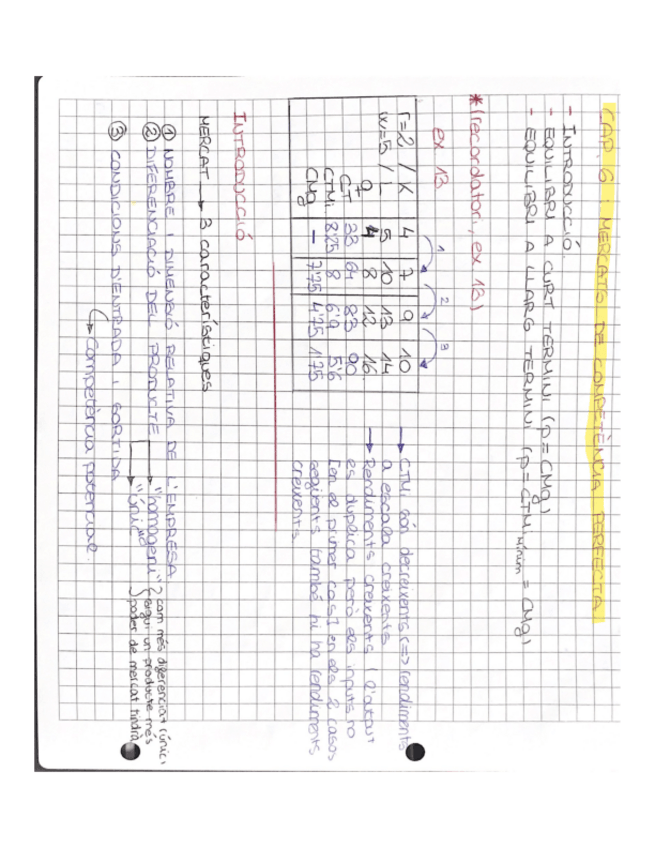 CAP. 6 : MERCATS DE COMPETÈNCIA PERFECTA
- INTRODUCCIÓ
- EQUILIBRI A CURT TERMINI (p = CMg)
- EQUILIBRI A LLARG TERMINI (p = CTMi mínim = CMg)
* (recordatori, ex 13)
ex 13
1 2 3
r=2 / K 4 7 9 10
w=5 / L 5 10 13 14
q 4 8 12 16
CT 33 64 83 90
CTMi 8'25 8 6'9 5'6
CMg - 7'75 4'75 1'75
→ CTMi són decreixents (=> rendiments
a escala creixents
→ Rendiments creixents (l'output
es duplica però els inputs no
[en el primer cas] en els 2 casos
següents també hi ha rendiments
creixents
INTRODUCCIÓ
MERCAT → 3 característiques
① NOMBRE I DIMENSIÓ RELATIVA DE L'EMPRESA
② DIFERENCIACIÓ DEL PRODUCTE → "homogeni"
→ "únic"
com més diferenciat (únic)
sigui un producte més
poder de mercat tindrà
③ CONDICIONS D'ENTRADA I SORTIDA
↳ Competència potencial.